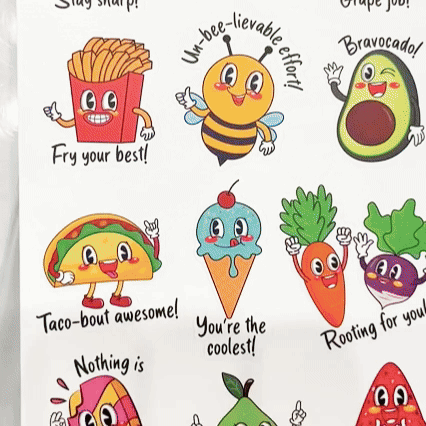 Stay sharp!
Grape job!
Un-bee-lievable effort!
Bravocado!
Fry your best!
Taco-bout awesome!
You're the
coolest!
Rooting for you!
Nothing is